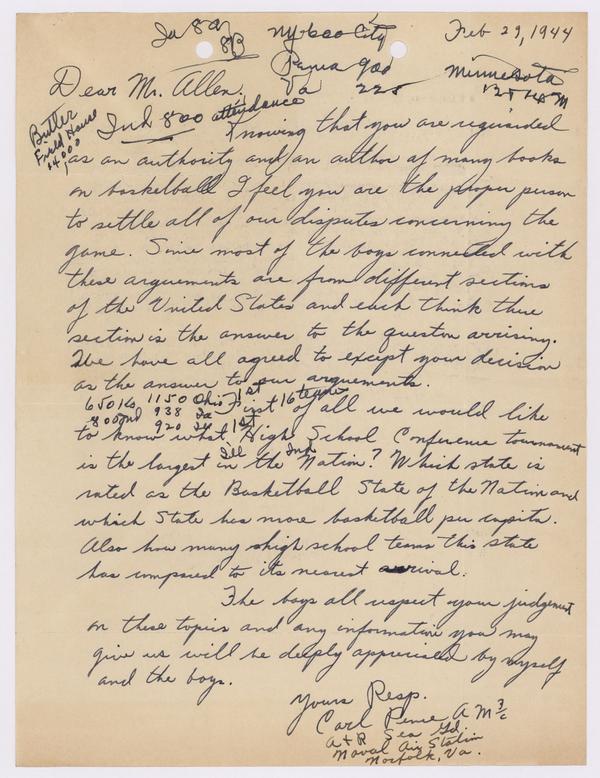 Ia 89
8B
NY 600 City
Feb 29, 1944
Penna 900
Minnesota
Dear Mr. Allen.
Va 225
Butler
Field House
14000
Ind 800 attendance
Knowing that you are reguarded
as an authority and an author of many books
on basketball I feel you are the proper person
to settle all of our disputes concerning the
game. Since most of the boys connected with
these arguements are from different sections
of the United States and each think there
section is the answer to the queston arrising.
We have all agreed to except your decision
as the answer to our arguements.
650 Ks. 1150 Ohio 1st 16 teams
800 Ind 938 Ia
First of all we would like
920
to know what High School Conference tournament
Ill Ind
is the largest in the Nation? Which state is
rated as the Basketball State of the Nation and
which State has more basketball per capita.
Also how many high school teams this state
has compared to its nearest rival.
The boys all respect your judgement
on these topics and any information you may
give us will be deeply appreciated by myself
and the boys.
Yours Resp.
Carl Pence A M 3/c
A + R Sea Gd.
Naval Air Station
Norfolk, Va.